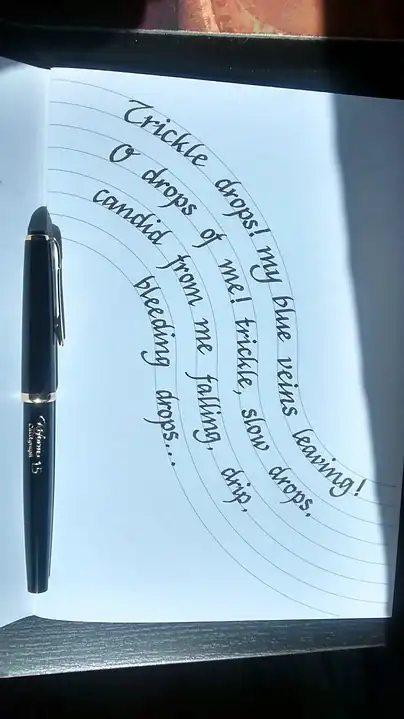 Trickle drops! my blue veins leaving!
O drops of me! trickle, slow drops,
candid from me falling, drip,
bleeding drops...
1.5